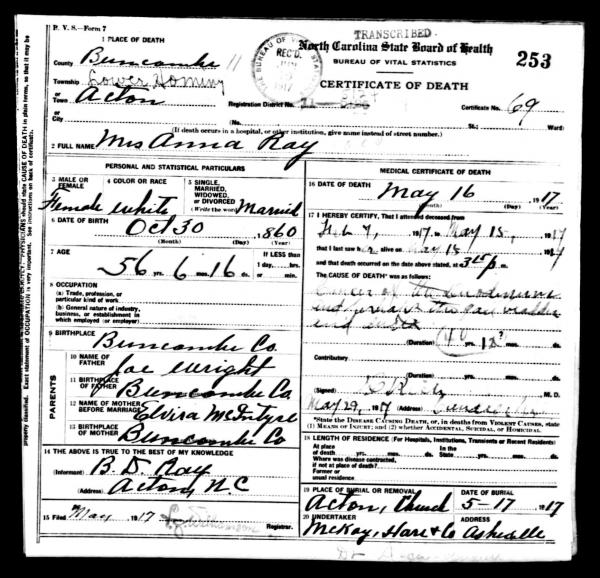 P. V. S.—Form 7
TRANSCRIBED
North Carolina State Board of Health
BUREAU OF VITAL STATISTICS
253
CERTIFICATE OF DEATH
BUREAU OF VITAL
REC'D.
1917
1 PLACE OF DEATH
County Buncombe 11
Township Lower Hominy
or
Town Acton
or
City
Registration District No.
Certificate No. 69
(No. St.; Ward)
(If death occurs in a hospital, or other institution, give name instead of street number.)
2 FULL NAME Mrs Anna Ray
PERSONAL AND STATISTICAL PARTICULARS
3 MALE OR FEMALE Female
4 COLOR OR RACE white
5 SINGLE, MARRIED, WIDOWED, OR DIVORCED (Write the word) Married
6 DATE OF BIRTH Oct 30 1860
(Month) (Day) (Year)
7 AGE 56 yrs. 6 mos. 16 ds.
IF LESS than 1 day, hrs. or min.
8 OCCUPATION
(a) Trade, profession, or particular kind of work
(b) General nature of industry, business, or establishment in which employed (or employer)
9 BIRTHPLACE Buncombe Co.
PARENTS
10 NAME OF FATHER Joe Wright
11 BIRTHPLACE OF FATHER Buncombe Co
12 NAME OF MOTHER BEFORE MARRIAGE Elvira McIntyre
13 BIRTHPLACE OF MOTHER Buncombe Co
14 THE ABOVE IS TRUE TO THE BEST OF MY KNOWLEDGE
(Informant) B. D. Ray
(Address) Acton, N.C
15 Filed May 1917
Registrar.
MEDICAL CERTIFICATE OF DEATH
16 DATE OF DEATH
May 16 1917
(Month) (Day) (Year)
17 I HEREBY CERTIFY, That I attended deceased from
Feb 7, 1917 to May 15, 1917
that I last saw her alive on May 15 1917
and that death occurred on the date above stated, at 3 15 P. m.
The CAUSE OF DEATH* was as follows:
Cancer of the
and perhaps the
and
(Duration) yrs.
Contributory
(Duration) yrs. mos. ds.
(Signed) M. D.
May 29, 1917 (Address)
*State the DISEASE CAUSING DEATH, or, in deaths from VIOLENT CAUSES, state (1) MEANS OF INJURY; and (2) whether ACCIDENTAL, SUICIDAL, or HOMICIDAL.
18 LENGTH OF RESIDENCE (For Hospitals, Institutions, Transients or Recent Residents)
At place of death In the State
Where was disease contracted, if not at place of death?
Former or usual residence
19 PLACE OF BURIAL OR REMOVAL Acton, Church
DATE OF BURIAL 5-17 1917
20 UNDERTAKER McKoy, Hare & Co
ADDRESS Asheville